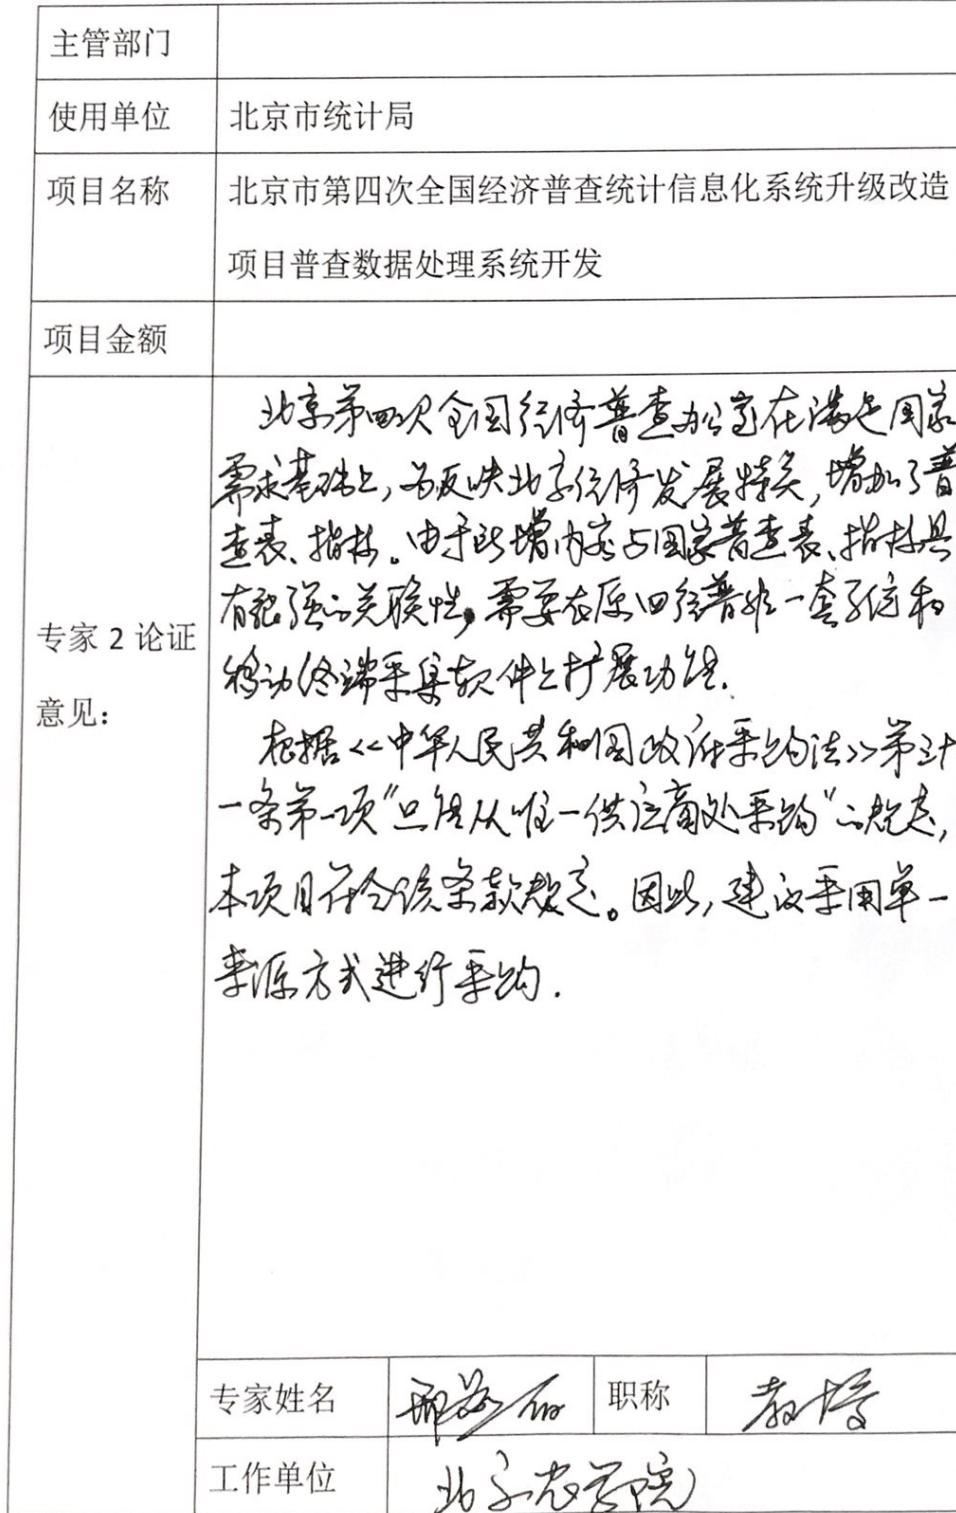 主管部门
使用单位 北京市统计局
项目名称 北京市第四次全国经济普查统计信息化系统升级改造
项目普查数据处理系统开发
项目金额
专家2论证
意见：
北京第四次全国经济普查办公室在满足国家
需求基础上，为反映北京经济发展特点，增加了普
查表、指标。由于此增内容与国家普查表、指标具
有很强的关联性，需要在原四经普 一套 和
移动终端采集软件上扩展功能.
根据<<中华人民共和国政府采购法>>第三十
一条第一项"只能从唯一供应商处采购"的规定，
本项目符合该条款规定。因此，建议采用单一
来源方式进行采购.
专家姓名 职称 教授
工作单位 北京农学院